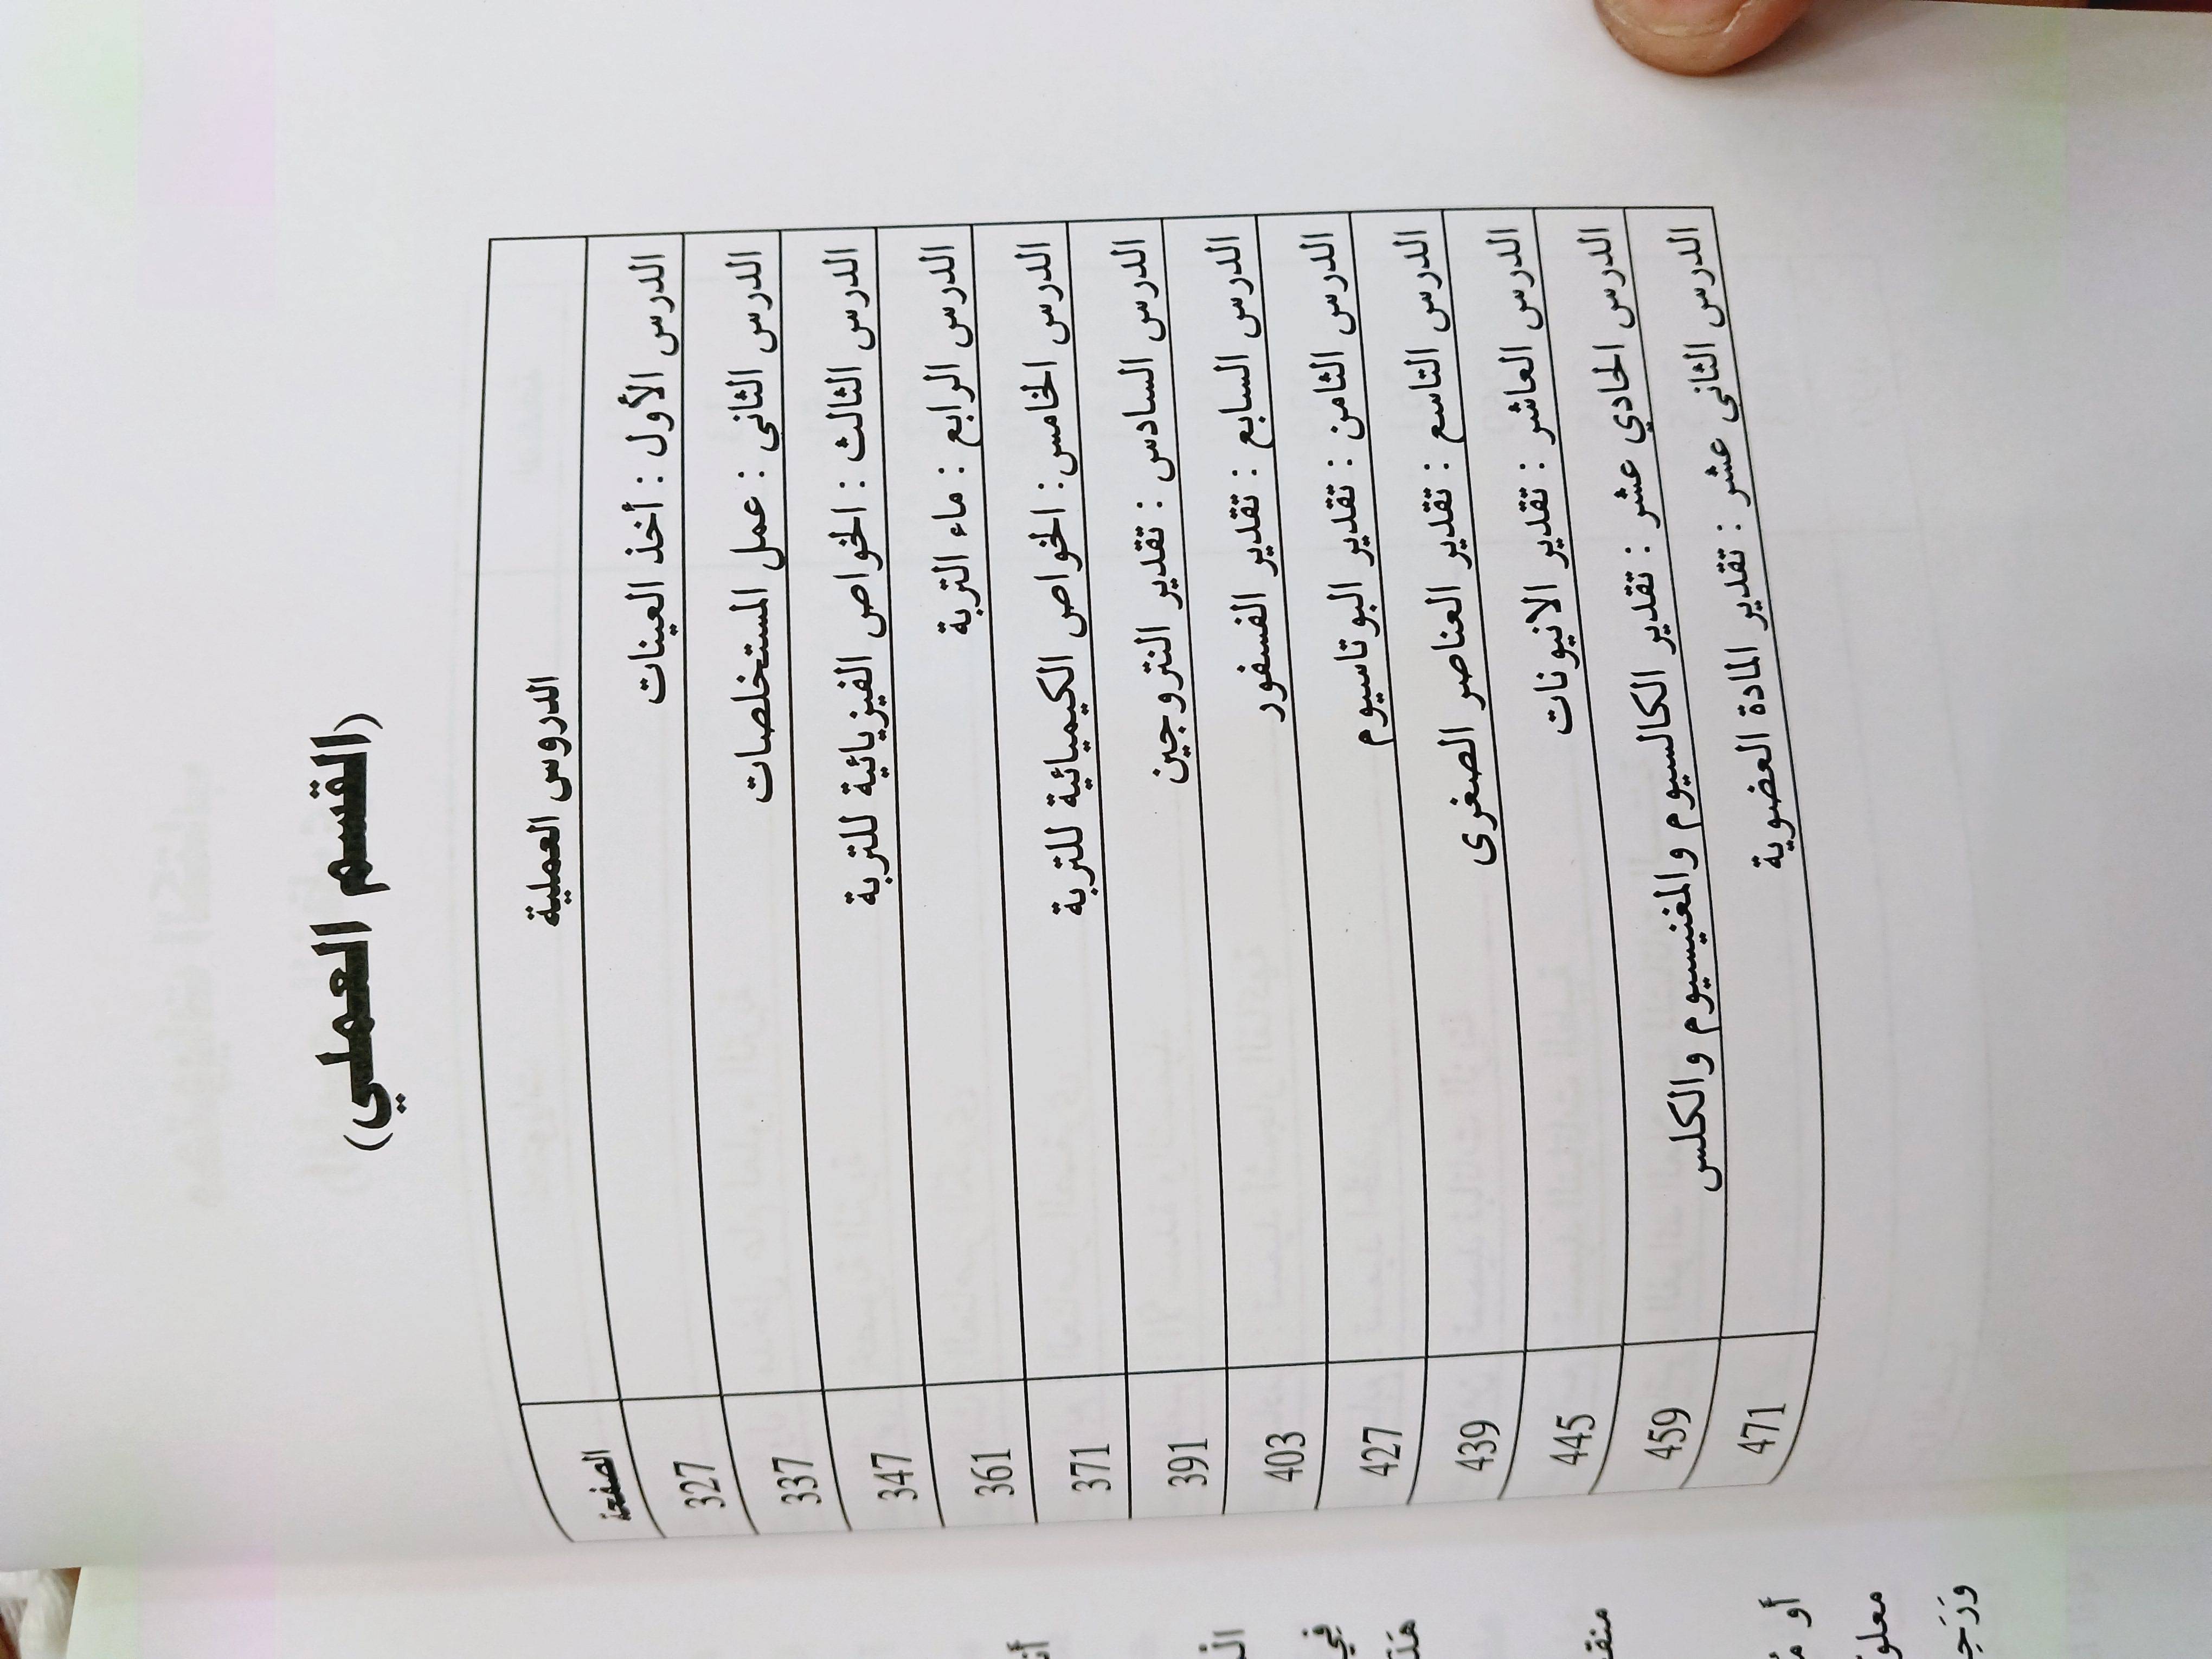 (القسم العملي)
الدروس العملية الصفحة
الدرس الأول : أخذ العينات 327
الدرس الثاني : عمل المستخلصات 337
الدرس الثالث : الخواص الفيزيائية للتربة 347
الدرس الرابع : ماء التربة 361
الدرس الخامس : الخواص الكيميائية للتربة 371
الدرس السادس : تقدير النتروجين 391
الدرس السابع : تقدير الفسفور 403
الدرس الثامن : تقدير البوتاسيوم 427
الدرس التاسع : تقدير العناصر الصغرى 439
الدرس العاشر : تقدير الانيونات 445
الدرس الحادي عشر : تقدير الكالسيوم والمغنيسيوم والكلس 459
الدرس الثاني عشر : تقدير المادة العضوية 471